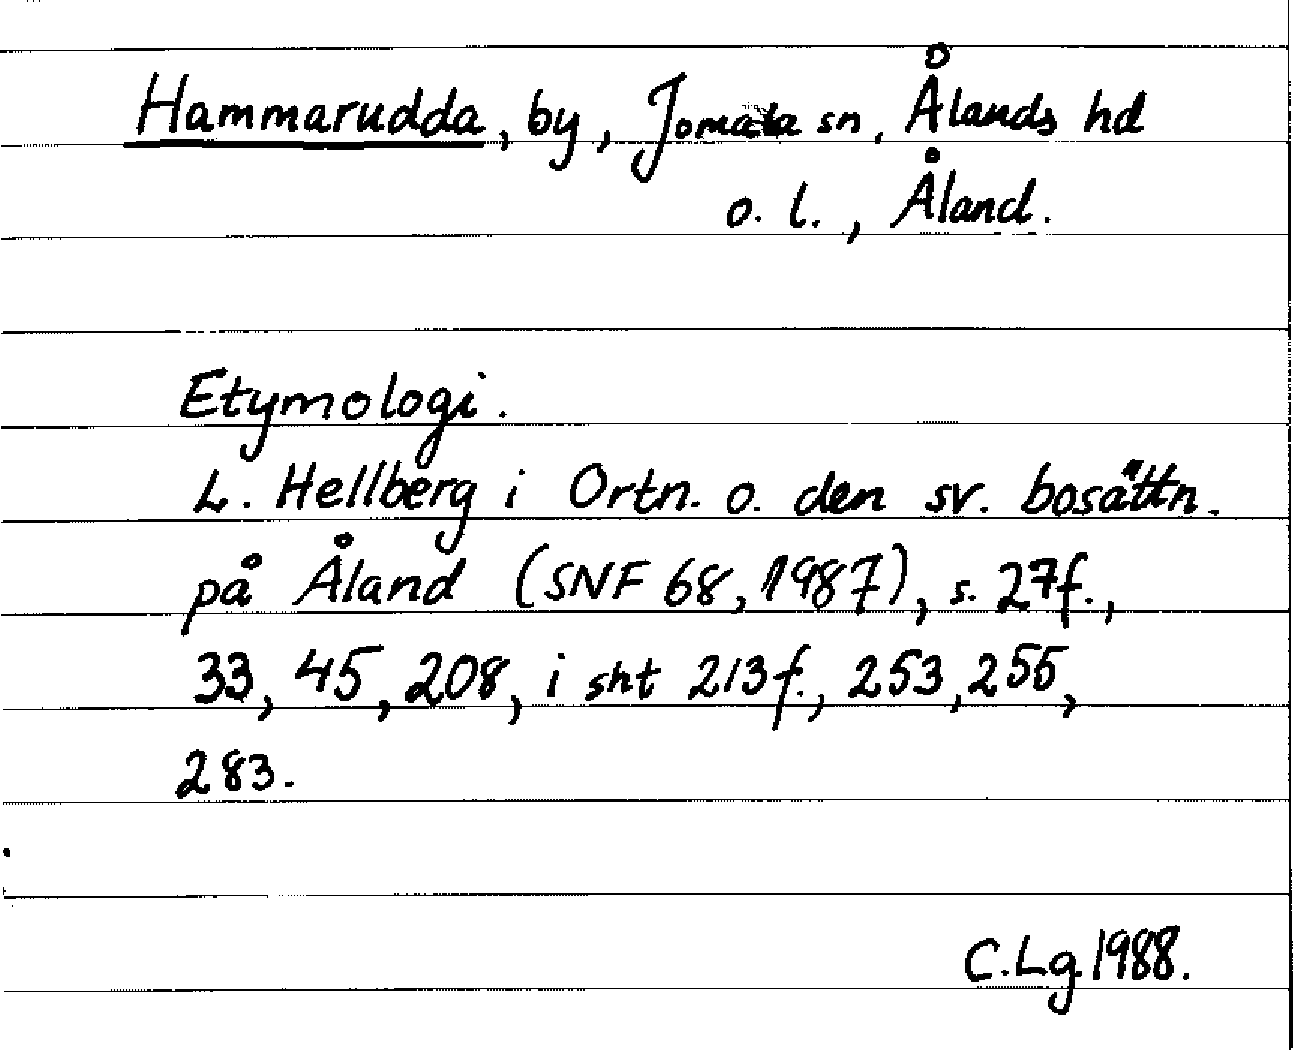 Hammarudda, by, Jomala sn, Ålands hd
o. l., Åland.
Etymologi.
L. Hellberg i Ortn. o. den sv. bosättn.
på Åland (SNF 68, 1987), s. 27f.,
33, 45, 208, i sht 213f., 253, 255,
283.
C.Lg 1988.